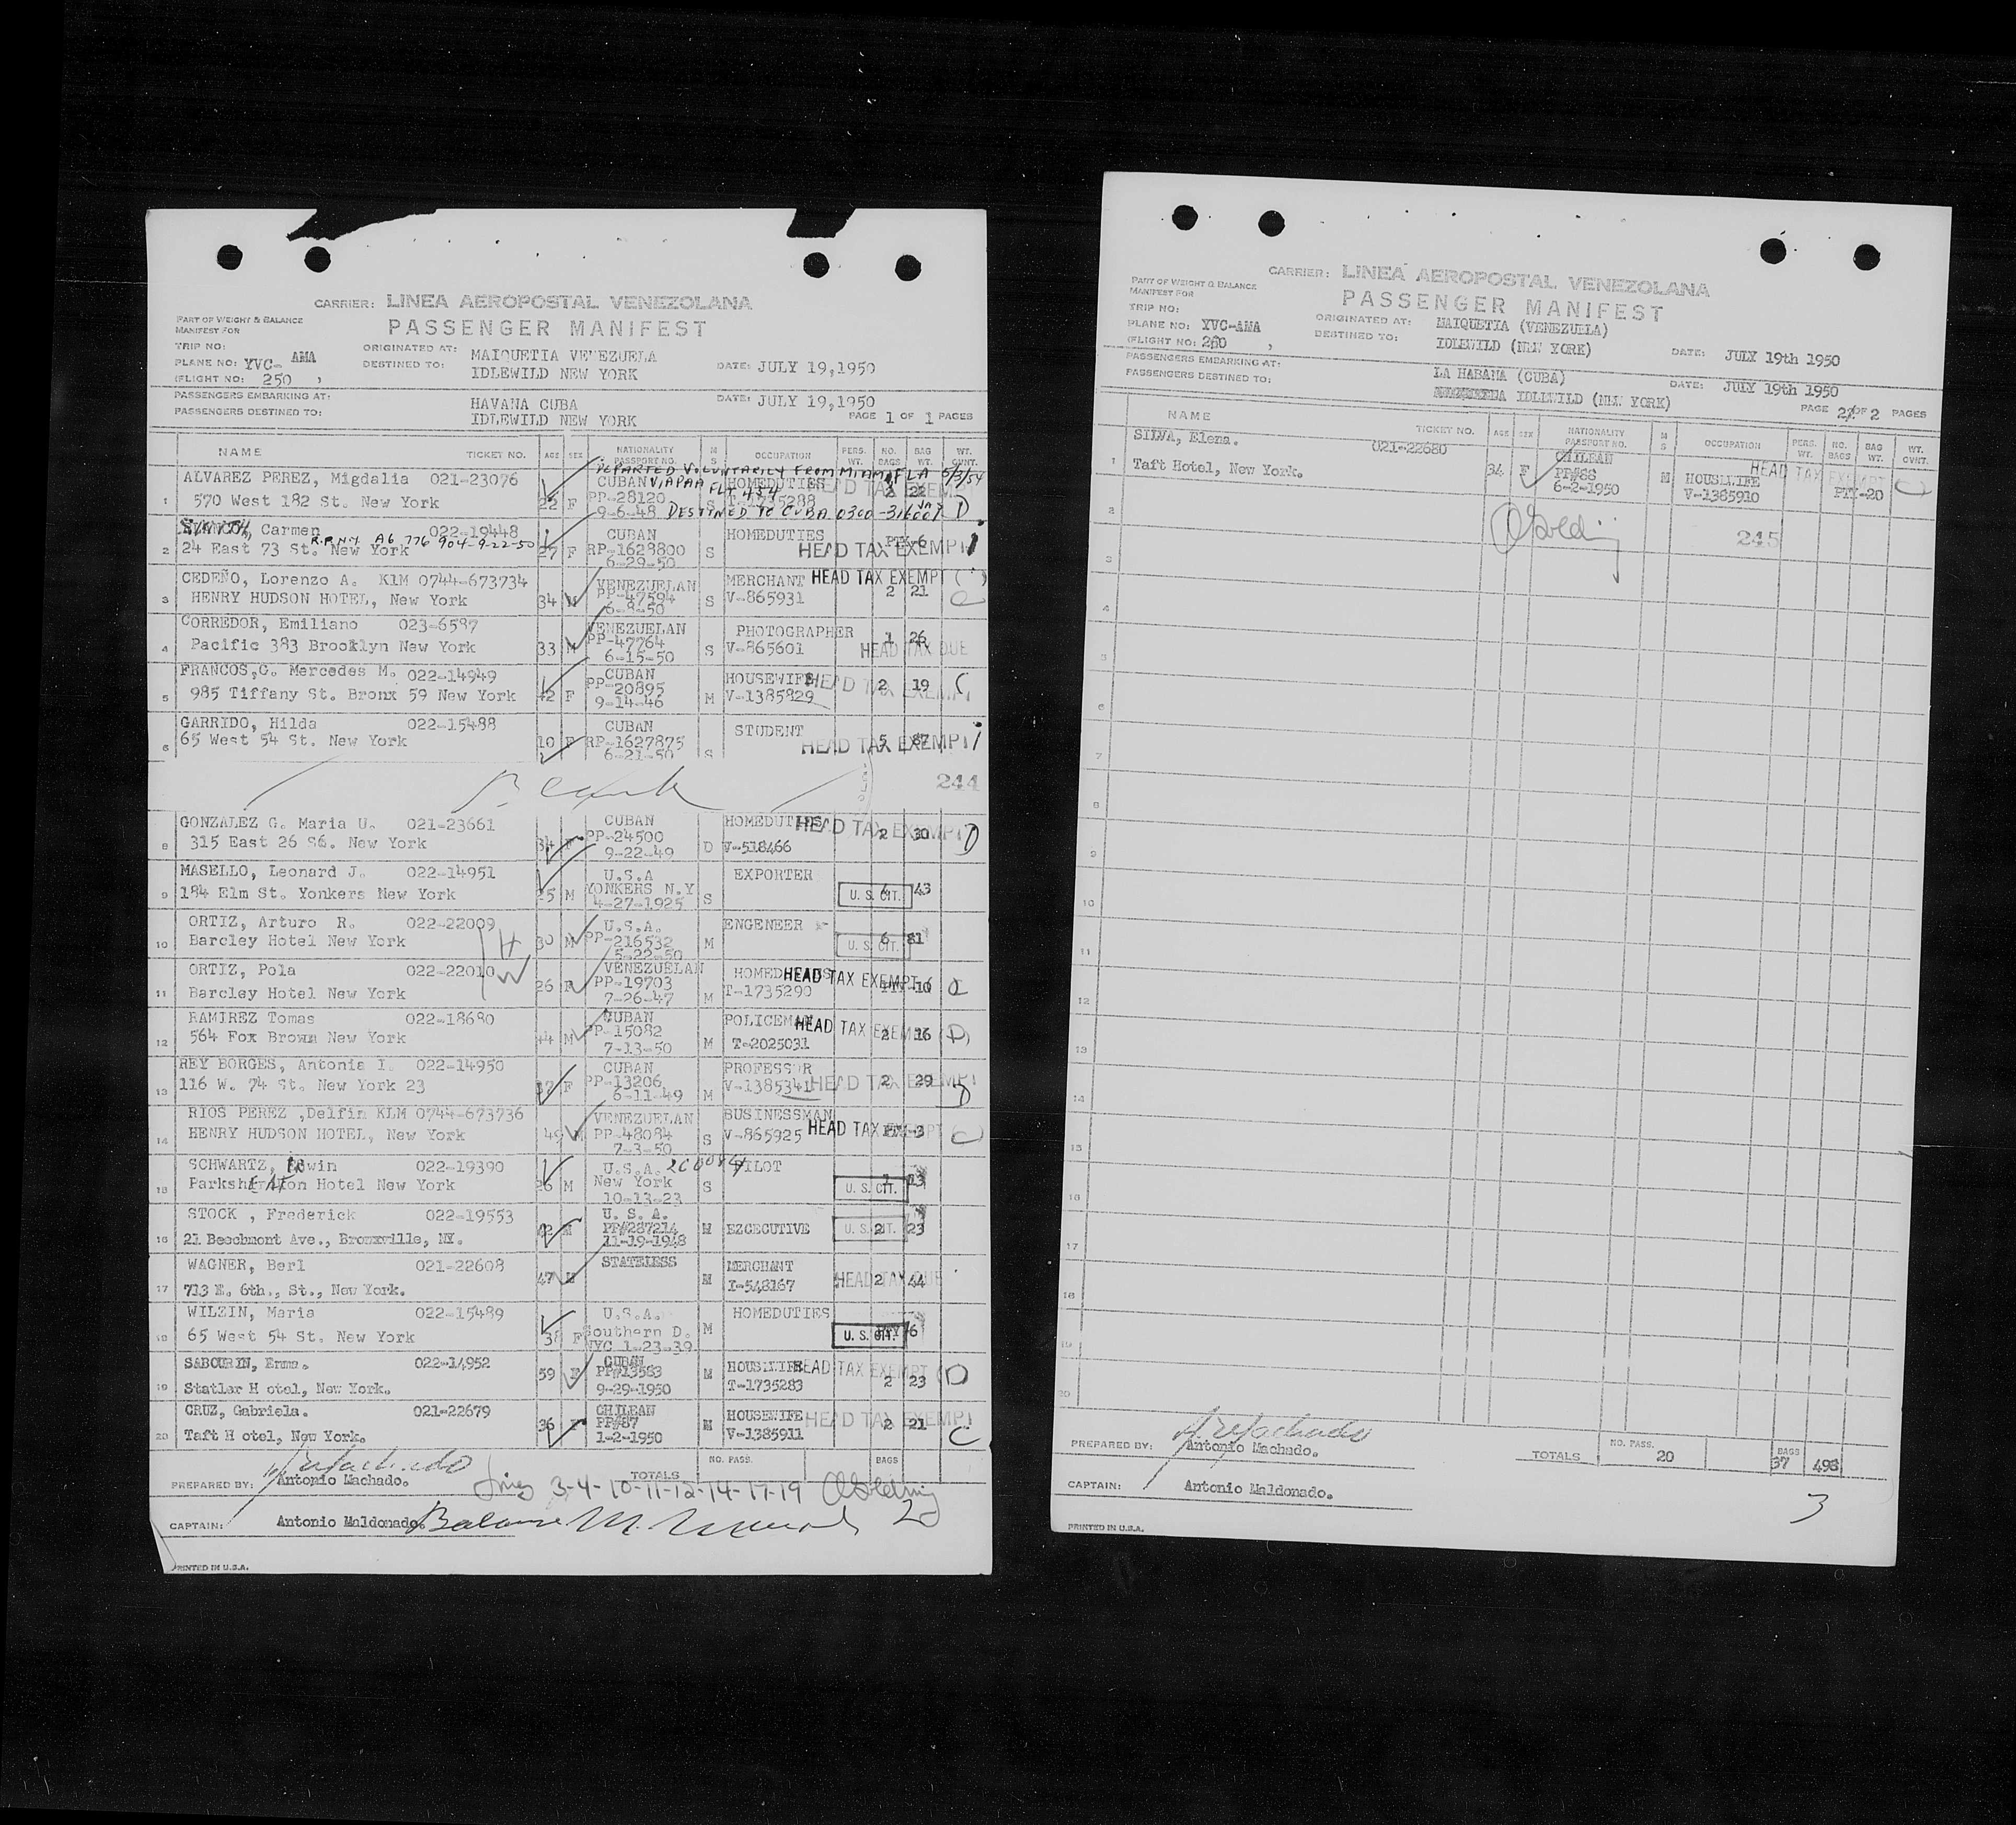 CARRIER: LINEA AEROPOSTAL VENEZOLANA
PASSENGER MANIFEST
PART OF WEIGHT & BALANCE
MANIFEST FOR
TRIP NO:
PLANE NO: YVC- AMA
(FLIGHT NO: 250 ,
ORIGINATED AT: MAIQUETIA VENEZUELA
DESTINED TO: IDLEWILD NEW YORK
DATE: JULY 19,1950
PASSENGERS EMBARKING AT: HAVANA CUBA
DATE: JULY 19,1950
PASSENGERS DESTINED TO: IDLEWILD NEW YORK
PAGE 1 OF 1 PAGES
NAME TICKET NO. AGE SEX NATIONALITY PASSPORT NO. M S OCCUPATION PERS. WT. NO. BAGS BAG WT. WT. CVNT.
DEPARTED VOLUNTARILY FROM MIAMI FLA 5/3/54
ALVAREZ PEREZ, Migdalia 021-23076 CUBAN VIA PAA FLT 454 HOMEDUTIES
1 570 West 182 St. New York 22 F PP-28120 S T-1735288 2 22 HEAD TAX EXEMPT
9-6-48 DESTINED TO CUBA 0300 D
Carmen 022-19448 CUBAN HOMEDUTIES PTY-6
R.P. N.Y. A6 776 904-9-22-50
2 24 East 73 St. New York 27 F RP-1628800 S HEAD TAX EXEMPT
6-29-50
CEDEÑO, Lorenzo A. KLM 0744-673734 VENEZUELAN MERCHANT HEAD TAX EXEMPT
3 HENRY HUDSON HOTEL, New York 34 M PP-47594 S V-865931 2 21
6-8-50
CORREDOR, Emiliano 023-6587 VENEZUELAN PHOTOGRAPHER 1 26
4 Pacific 383 Brooklyn New York 33 M PP-47764 S V-865601 HEAD TAX DUE
6-15-50
FRANCOS,G. Mercedes M. 022-14949 CUBAN HOUSEWIFE HEAD TAX EXEMPT 2 19 C
5 985 Tiffany St. Bronx 59 New York 42 F PP-20895 M V-1385829
9-14-46
GARRIDO, Hilda 022-15488 CUBAN STUDENT
6 65 West 54 St. New York 10 F RP-1627875 S HEAD TAX EXEMPT 5 87
6-21-50
244
GONZALEZ G. Maria U. 021-23661 CUBAN HOMEDUTIES HEAD TAX EXEMPT
8 315 East 26 St. New York 34 F PP-24500 D V-518466 2 30 D
9-22-49
MASELLO, Leonard J. 022-14951 U.S.A EXPORTER
9 184 Elm St. Yonkers New York 25 M YONKERS N.Y S U. S. CIT. 43
4-27-1925
ORTIZ, Arturo R. 022-22009 U.S.A. ENGENEER
10 Barcley Hotel New York H 30 M PP-216532 M U. S. CIT. 6 81
5-22-50
ORTIZ, Pola 022-22010 W VENEZUELAN HOMEDUTIES HEAD TAX EXEMPT
11 Barcley Hotel New York 26 F PP-19703 M T-1735290 PTY-10
7-26-47
RAMIREZ Tomas 022-18680 CUBAN POLICEMAN HEAD TAX EXEMPT
12 564 Fox Brown New York 44 M PP-15082 M T-2025031 2 16 (D)
7-13-50
REY BORGES, Antonia I. 022-14950 CUBAN PROFESSOR
13 116 W. 74 St. New York 23 37 F PP-13206 M V-1385341 HEAD TAX EXEMPT 2 29 D
6-11-49
RIOS PEREZ ,Delfin KLM 0744-673736 VENEZUELAN BUSINESSMAN
14 HENRY HUDSON HOTEL, New York 49 M PP-48084 S V-865925 HEAD TAX EXEMPT C
7-3-50
SCHWARTZ, Irwin 022-19390 U.S.A. PILOT
15 Parksheraton Hotel New York 26 M New York S U. S. CIT. 13
10-13-23
STOCK , Frederick 022-19553 U. S. A.
16 21 Beechmont Ave., Bronxville, NY. 42 M PP#287214 M EZCECUTIVE U. S. CIT. 2 23
11-19-1948
WAGNER, Berl 021-22608 STATELESS MERCHANT
17 713 E. 6th., St., New York. 47 M M I-548167 HEAD TAX DUE 2 44
WILZIN, Maria 022-15489 U.S.A. HOMEDUTIES
18 65 West 54 St. New York 38 F Southern D. M U. S. CIT. PTY 6
NYC 1-23-39
SABOURIN, Emma. 022-14952 CUBAN HOUSEWIFE HEAD TAX EXEMPT (D
19 Statler H otel, New York. 59 F PP#13583 M T-1735283 2 23
9-29-1950
CRUZ, Gabriela. 021-22679 CHILEAN HOUSEWIFE HEAD TAX EXEMPT
20 Taft H otel, New York. 36 F PP#87 M V-1385911 2 21 C
1-2-1950
TOTALS NO. PASS. BAGS
PREPARED BY: Antonio Machado.
Lines 3-4-10-11-12-14-17-19
CAPTAIN: Antonio Maldonado. Balance 20
PRINTED IN U.S.A.
CARRIER: LINEA AEROPOSTAL VENEZOLANA
PASSENGER MANIFEST
PART OF WEIGHT & BALANCE
MANIFEST FOR
TRIP NO:
PLANE NO: YVC-AMA
(FLIGHT NO: 260 ,
ORIGINATED AT: MAIQUETIA (VENEZUELA)
DESTINED TO: IDLEWILD (NEW YORK)
DATE: JULY 19th 1950
PASSENGERS EMBARKING AT: LA HABANA (CUBA)
DATE: JULY 19th 1950
PASSENGERS DESTINED TO: IDLEWILD (NEW YORK)
PAGE 2 OF 2 PAGES
NAME TICKET NO. AGE SEX NATIONALITY PASSPORT NO. M S OCCUPATION PERS. WT. NO. BAGS BAG WT. WT. CVNT.
SILVA, Elena. 021-22680 CHILEAN HEAD TAX EXEMPT
1 Taft Hotel, New York. 34 F PP#88 M HOUSEWIFE
6-2-1950 V-1385910 PTY-20
2 245
3
4
5
6
7
8
9
10
11
12
13
14
15
16
17
18
19
20
PREPARED BY: Antonio Machado.
TOTALS NO. PASS. 20 BAGS 37 498
CAPTAIN: Antonio Maldonado.
3
PRINTED IN U.S.A.